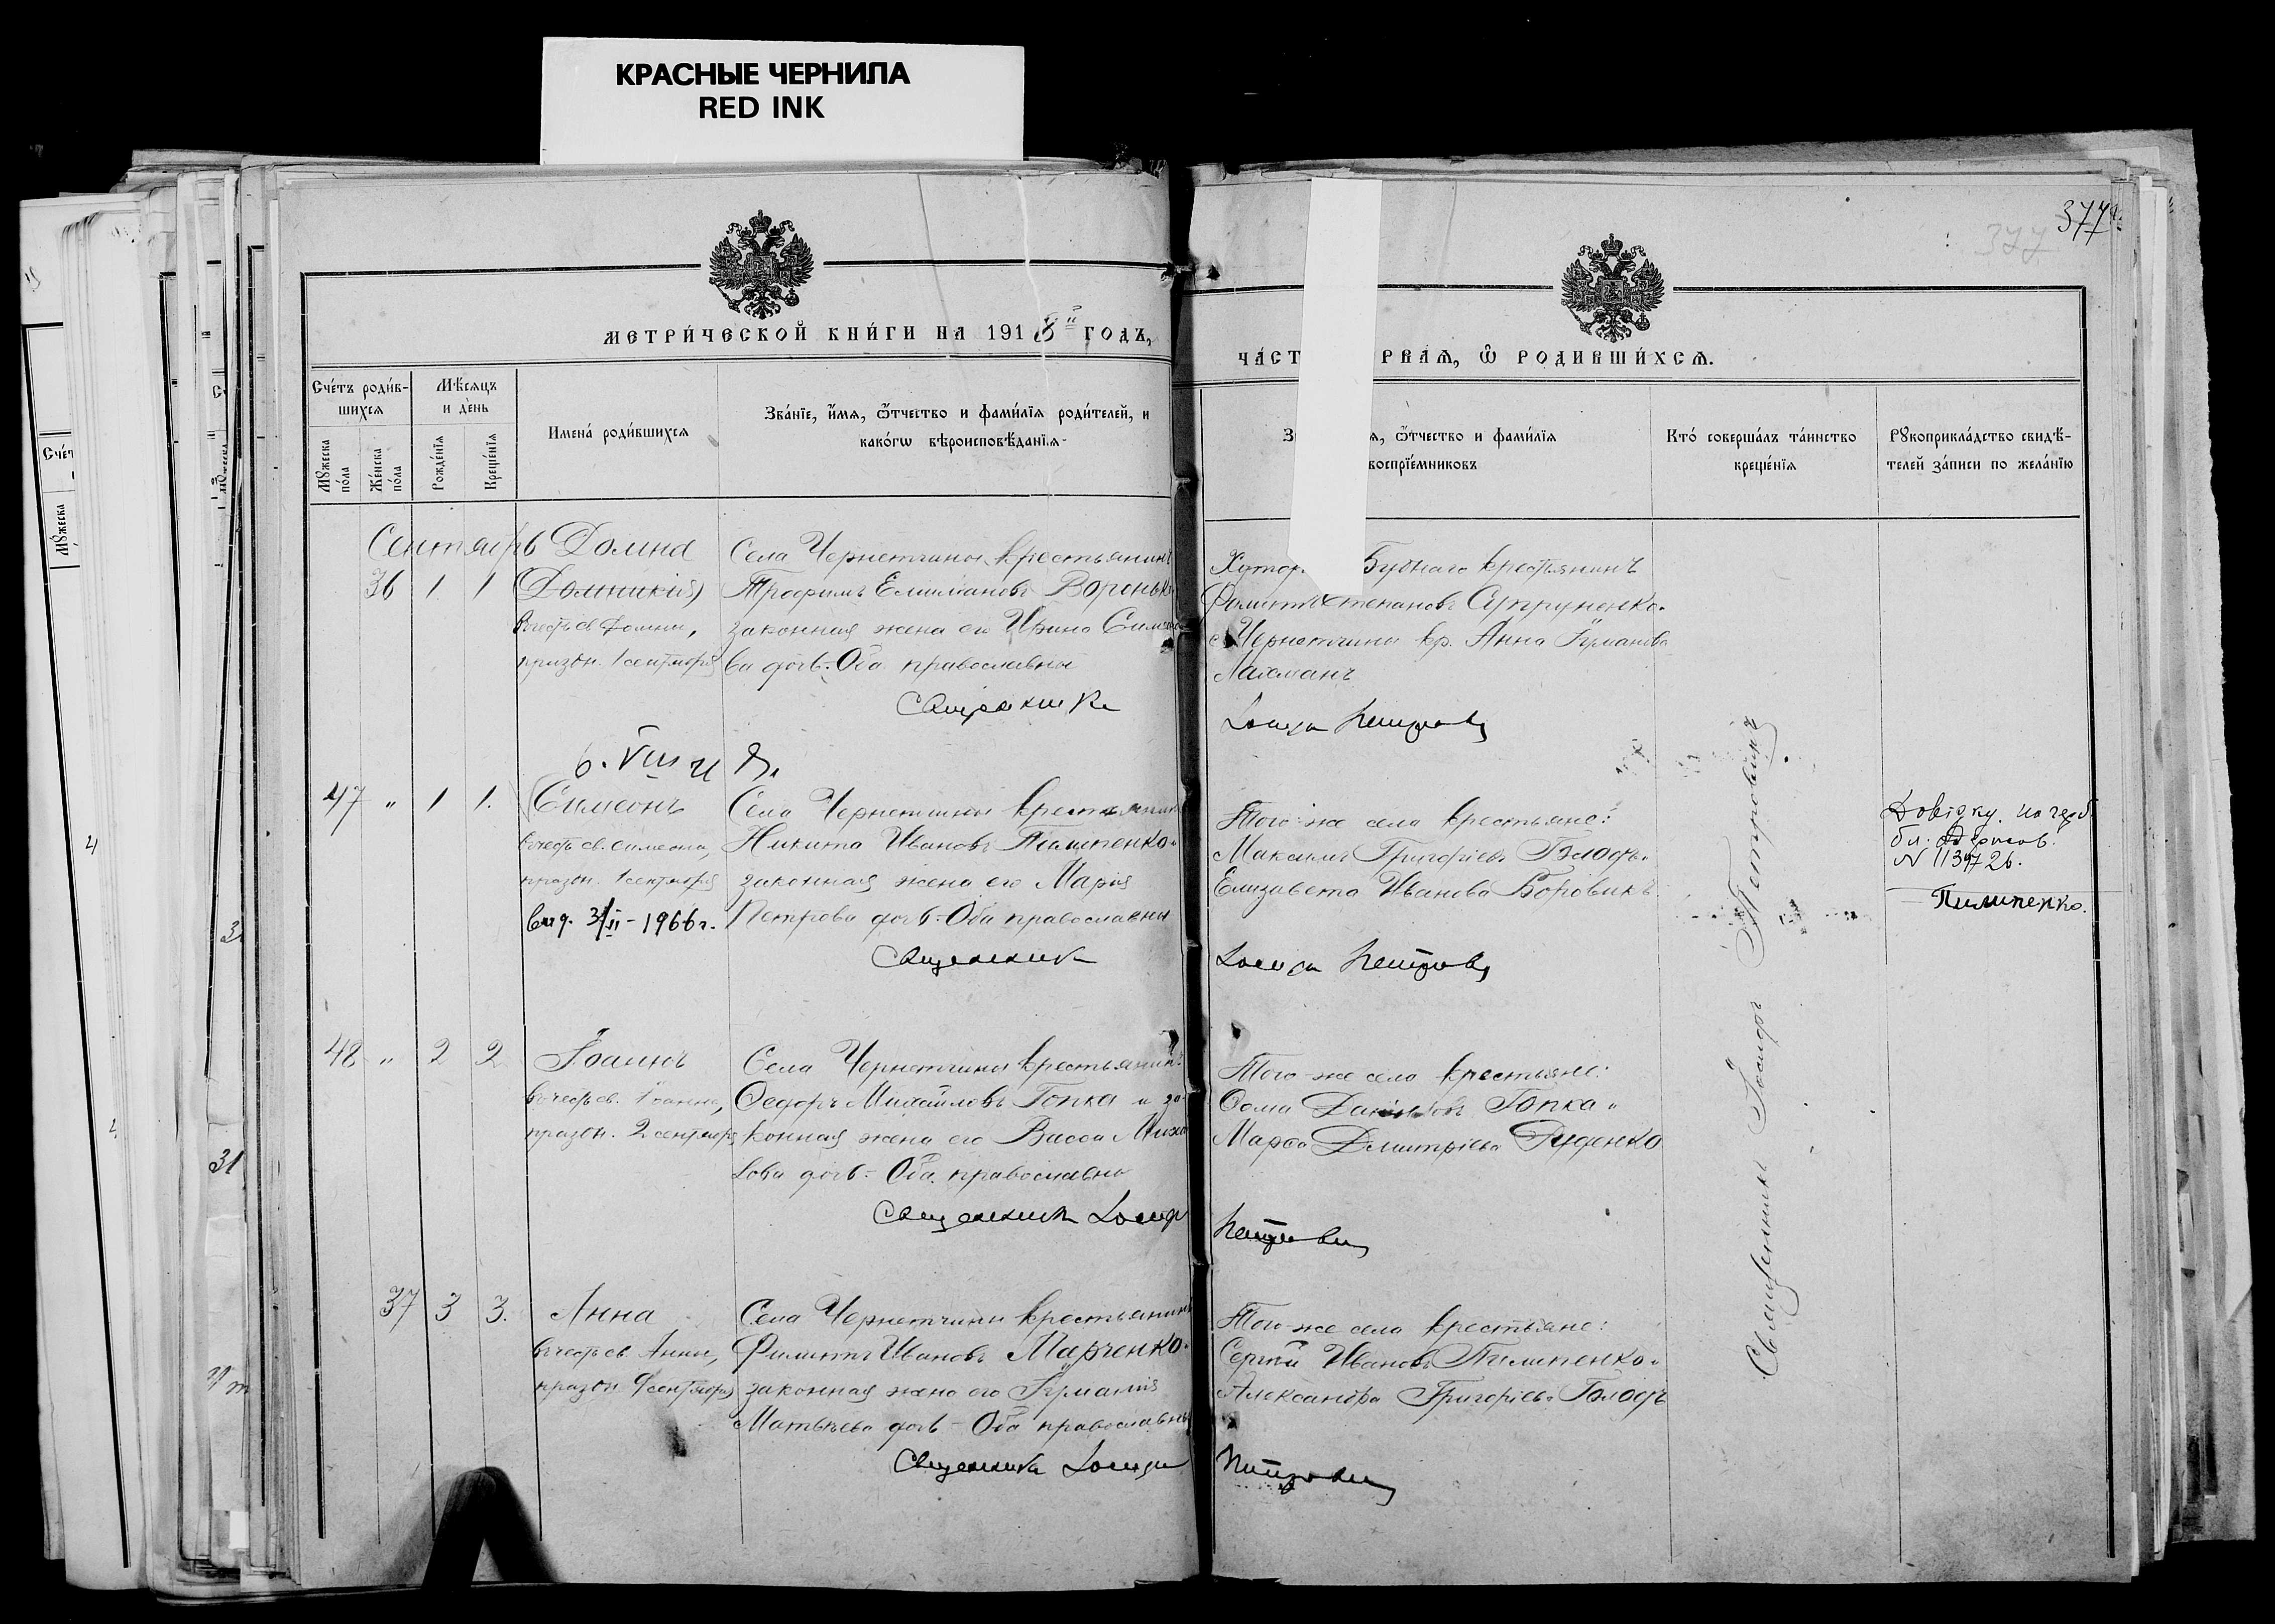 КРАСНЫЕ ЧЕРНИЛА
RED INK
377
377
МЕТРИ́ЧЕСКОЙ КНИ́ГИ НА 1918й ГОДЪ,
ЧА́СТ РВАѦ, Ѡ РОДИВШИ́ХСѦ.
Сче́тъ роди́в-
шихсѧ
Мꙋ́жеска по́ла
Же́нска по́ла
Мѣ́сѧцъ
и де́нь
Рожде́нїѧ
Креще́нїѧ
Имена́ роди́вшихсѧ
Зва́нїе, и́мѧ, ѻ́тчество и фами́лїѧ роди́телей, и
како́гѡ вѣроисповѣ́данїѧ
З ѧ, ѻ́тчество и фами́лїѧ
воспрїе́мниковъ
Кто́ соверша́лъ та́инство
креще́нїѧ
Рꙋкоприкла́дство свидѣ́-
телей за́писи по жела́нїю
Сентябрь
36 1 1
Домна
(Домникія)
празdн. 1 сентября
Села Чернетчины крестьянинъ
Трофимъ Емиліановъ Воронько
законная жена его Ирина Симео
ва дочь. Оба православны
Священникъ
Бучнаго крестьянинъ
Филиппъ Степановъ Супруненко.
с. Чернетчины кр. Анна
Іосифъ Петровскій
47 " 1 1.
Симеонъ
въ честь св. Симеона,
праздн. 1 сентября
вид. 3/II-1966г.
Села Чернетчины крестьянинъ
Никита Ивановъ Пилипенко
законная жена его Марія
Петрова дочь. Оба православны
Священникъ
Того-же села крестьяне:
Максимъ Григоріевъ Бѣлодѣдъ
Елизавета Иванова Боровикъ
Іосифъ Петровскій
Довідку
N 113972б.
Пилипенко.
48 " 2 2
Іоаннъ
въ честь св. Іоанна,
праздн. 2 сентября
Села Чернетчины крестьянинъ
Ѳедоръ Михайловъ Гопка и за
конная жена его Васса Михай
лова дочь. Оба православны
Священникъ Іосифъ
Того-же села крестьяне:
Ѳома Даниловъ Гопка
Марѳа Димитріева Руденко
Петровскій
37 3 3.
Анна
въ честь св. Анны,
праздн. 9 сентября
Села Чернетчины крестьянинъ
Филиппъ Ивановъ Марченко
законная жена его
Матвѣева дочь. Оба православны
Священникъ Іосифъ
Того-же села крестьяне:
Сергій Ивановъ Пилипенко
Александра Григоріева
Петровскій
Священникъ Іосифъ Петровскій